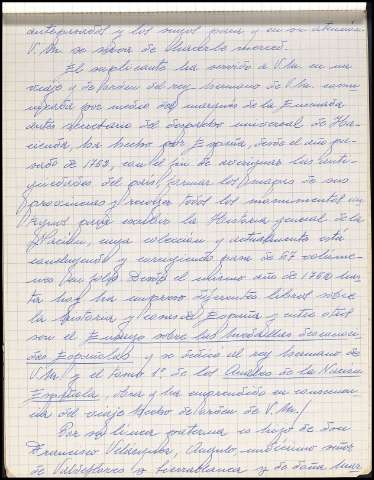 antepasados y los suyos para y en su atención
V.M. se sirva de hacerle merced.
El suplicante ha servido a V.M. en un
viaje y de orden del rey hermano de V.M. comu-
nicada por medio del marqués de la Ensenada
antes secretario del despacho universal de Ha-
cienda, ha hecho por España, desde el año pa-
sado de 1752, con el fin de averiguar las anti-
güedades del país, formar los mapas de sus
provincias y recoger todos los monumentos
para escribir la Historia general de la
Nación, cuya colección y actualmente está
coordinando y corrigiendo pasa de 67 volúme-
nes en folio. Desde el mismo año de 1750 has-
ta hoy ha impreso diferentes libros sobre
la historia y cosas de España y entre otros
son el Ensayo sobre los alfabetos desconoci-
dos Españoles y se dedicó al rey hermano de
V.M. y el tomo 1º de los Anales de la Nación
Española, obra y ha emprendido en consecuen-
cia del viaje hecho de orden de V.M./
Por su línea paterna es hijo de don
Francisco Velázquez, Angulo, undécimo señor
de Valdeflores y Sierrablanca y de doña Mar-